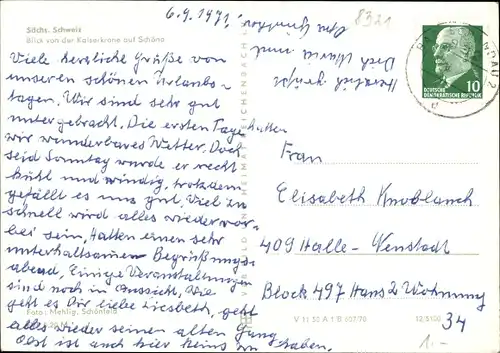 6.9.1971
8321
Sächs. Schweiz
Blick von der Kaiserkrone auf Schöna
Viele herzliche Grüße von
unseren schönen Urlaubs-
tagen. Wir sind sehr gut
untergebracht. Die ersten Tage hatten
wir wunderbares Wetter. Doch
seid Sonntag wurde er recht
kühl und windig, trotzdem
gefällt es uns gut. Viel zu
schnell wird alles wieder vor-
bei sein. Hatten einen sehr
unterhaltsamen Begrüßungs-
abend. Einige Veranstaltungen
sind noch in Aussicht. Wie
geht es Dir liebe Liesbeth, geht
alles wieder seinen alten Gang
Obst ist auch hier keins zu haben.
Herzlich grüßt
Dich Maria und
Foto: Mehlig, Schönfeld
VERLAG HEIMAT REICHENBACH
DEUTSCHE
DEMOKRATISCHE REPUBLIK
10
Frau
Elisabeth Knoblauch
409 Halle-Neustadt
Block 497 Haus 2 Wohnung
34
V 11 50 A 1 B 657/70
12/5120
1.-